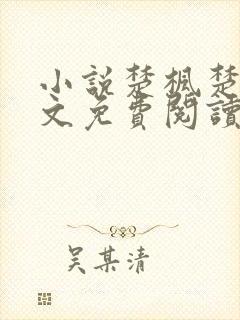 小說楚楓楚
文免費閱讀
吴某清